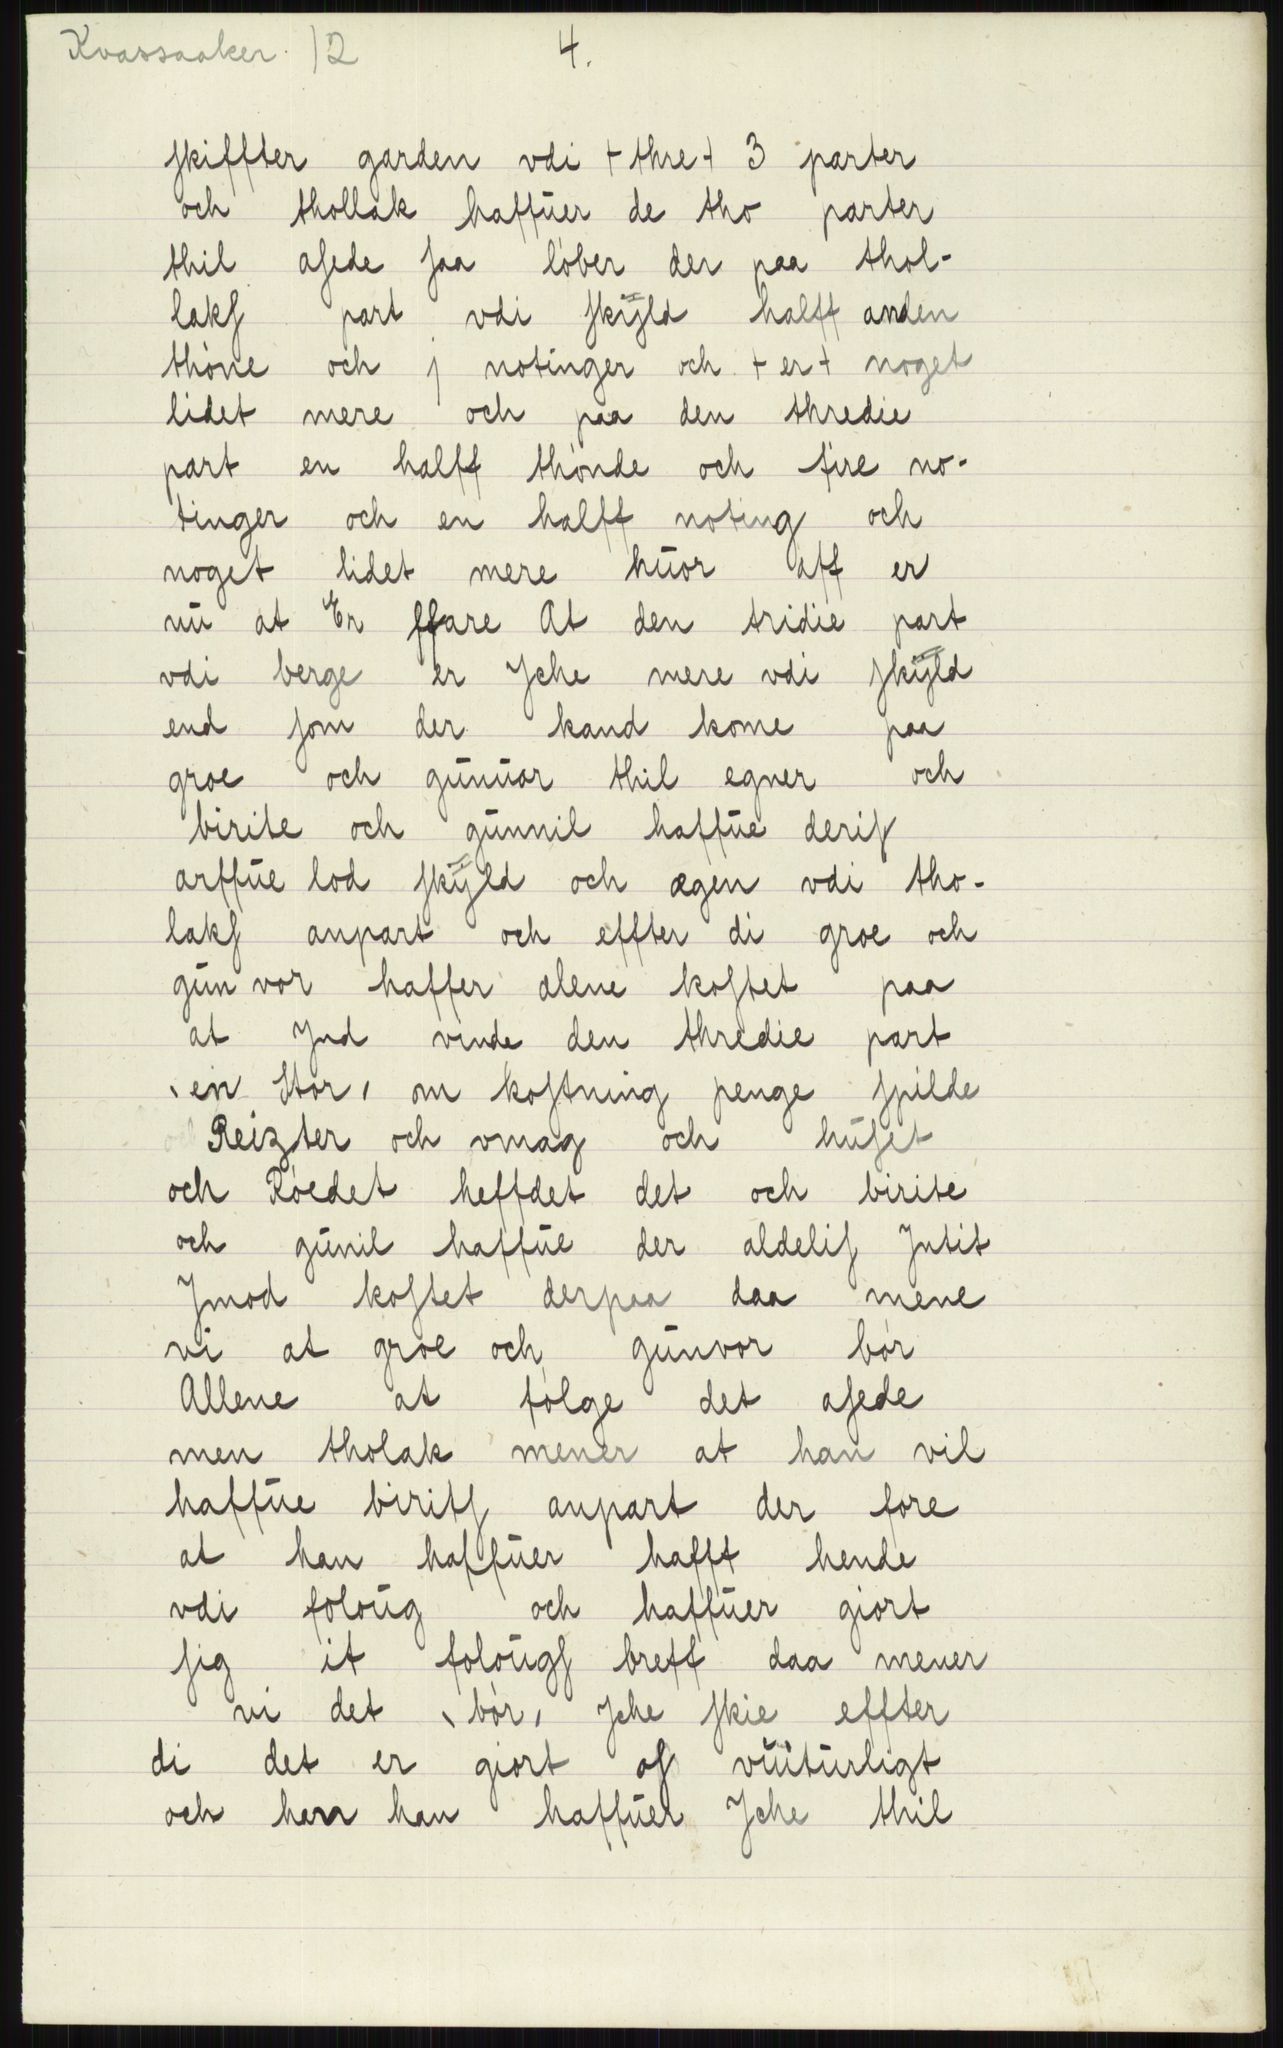 Kvassaaker. 12
4.
skiffter garden vdi + thre + 3 parter
och thollak haffuer de tho parter
thil asede saa løber der paa thol-
laks part vdi skÿld halff anden
thøne och j notinger och + er + noget
lidet mere och paa den thredie
part en halff thønde och fire no-
tinger och en halff noting och
noget lidet mere huor aff er
nu at Er ffare At den tridie part
vdi berge er Jche mere vdi skÿld
end som der kand kome paa
groe och gunuor thil egner och
birite och gunnil haffue deris
arffue lod skÿld och ægen vdi tho-
laks anpart och effter di groe och
gun vor haffer alene kostet paa
at Jnd vinde den thredie part
ˎen storˏ om kostning penge spilde
och Reizter och vmag och huset
och Røedet heffdet det och birite
och gunil haffue der aldelis Jntit
Jmod kostet derpaa daa mene
vi at groe och gunvor bør
Allene at følge det asede
men tholak mener at han vil
haffue birits anpart der fore
at han haffuer hafft hende
vdi foloug och haffuer giort
sig it folougs breff daa mener
vi det ˎbørˏ Jche skie effter
di det er giort af vuiturligt
och han han haffuer Jche thil